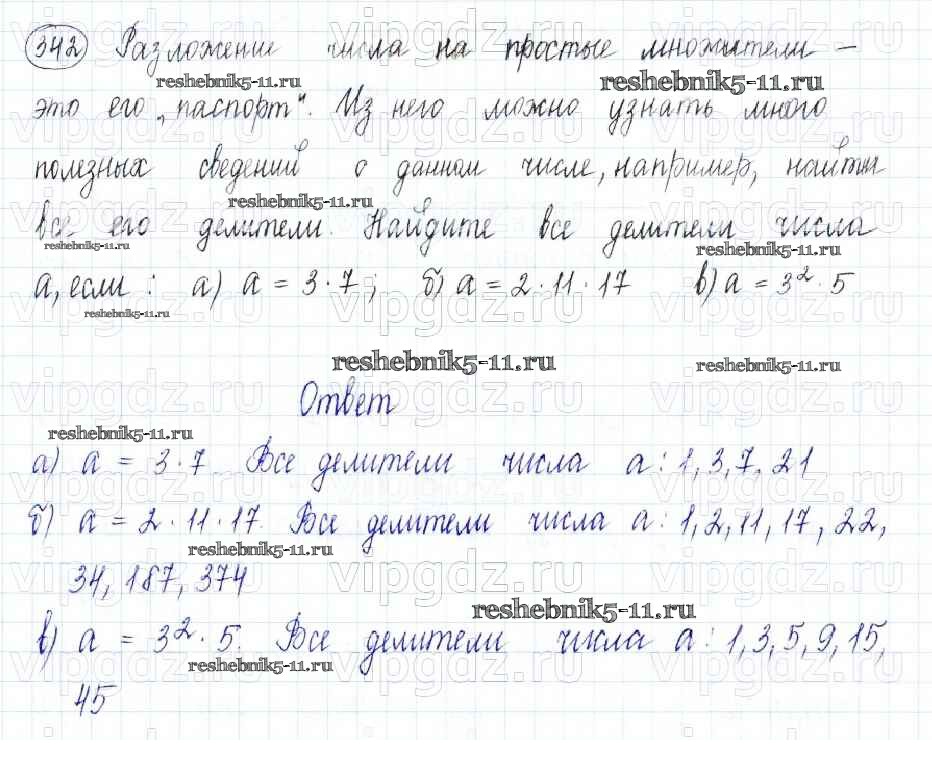 342 Разложение числа на простые множители –
это его „паспорт“. Из него можно узнать много
полезных сведений о данном числе, например, найти
все его делители. Найдите все делители числа
а, если: а) а = 3·7; б) а = 2·11·17 в) а = 3²·5
Ответ
а) а = 3·7. Все делители числа а: 1, 3, 7, 21
б) а = 2·11·17. Все делители числа а: 1, 2, 11, 17, 22,
34, 187, 374
в) а = 3²·5. Все делители числа а: 1, 3, 5, 9, 15,
45
reshebnik5-11.ru
vipgdz.ru